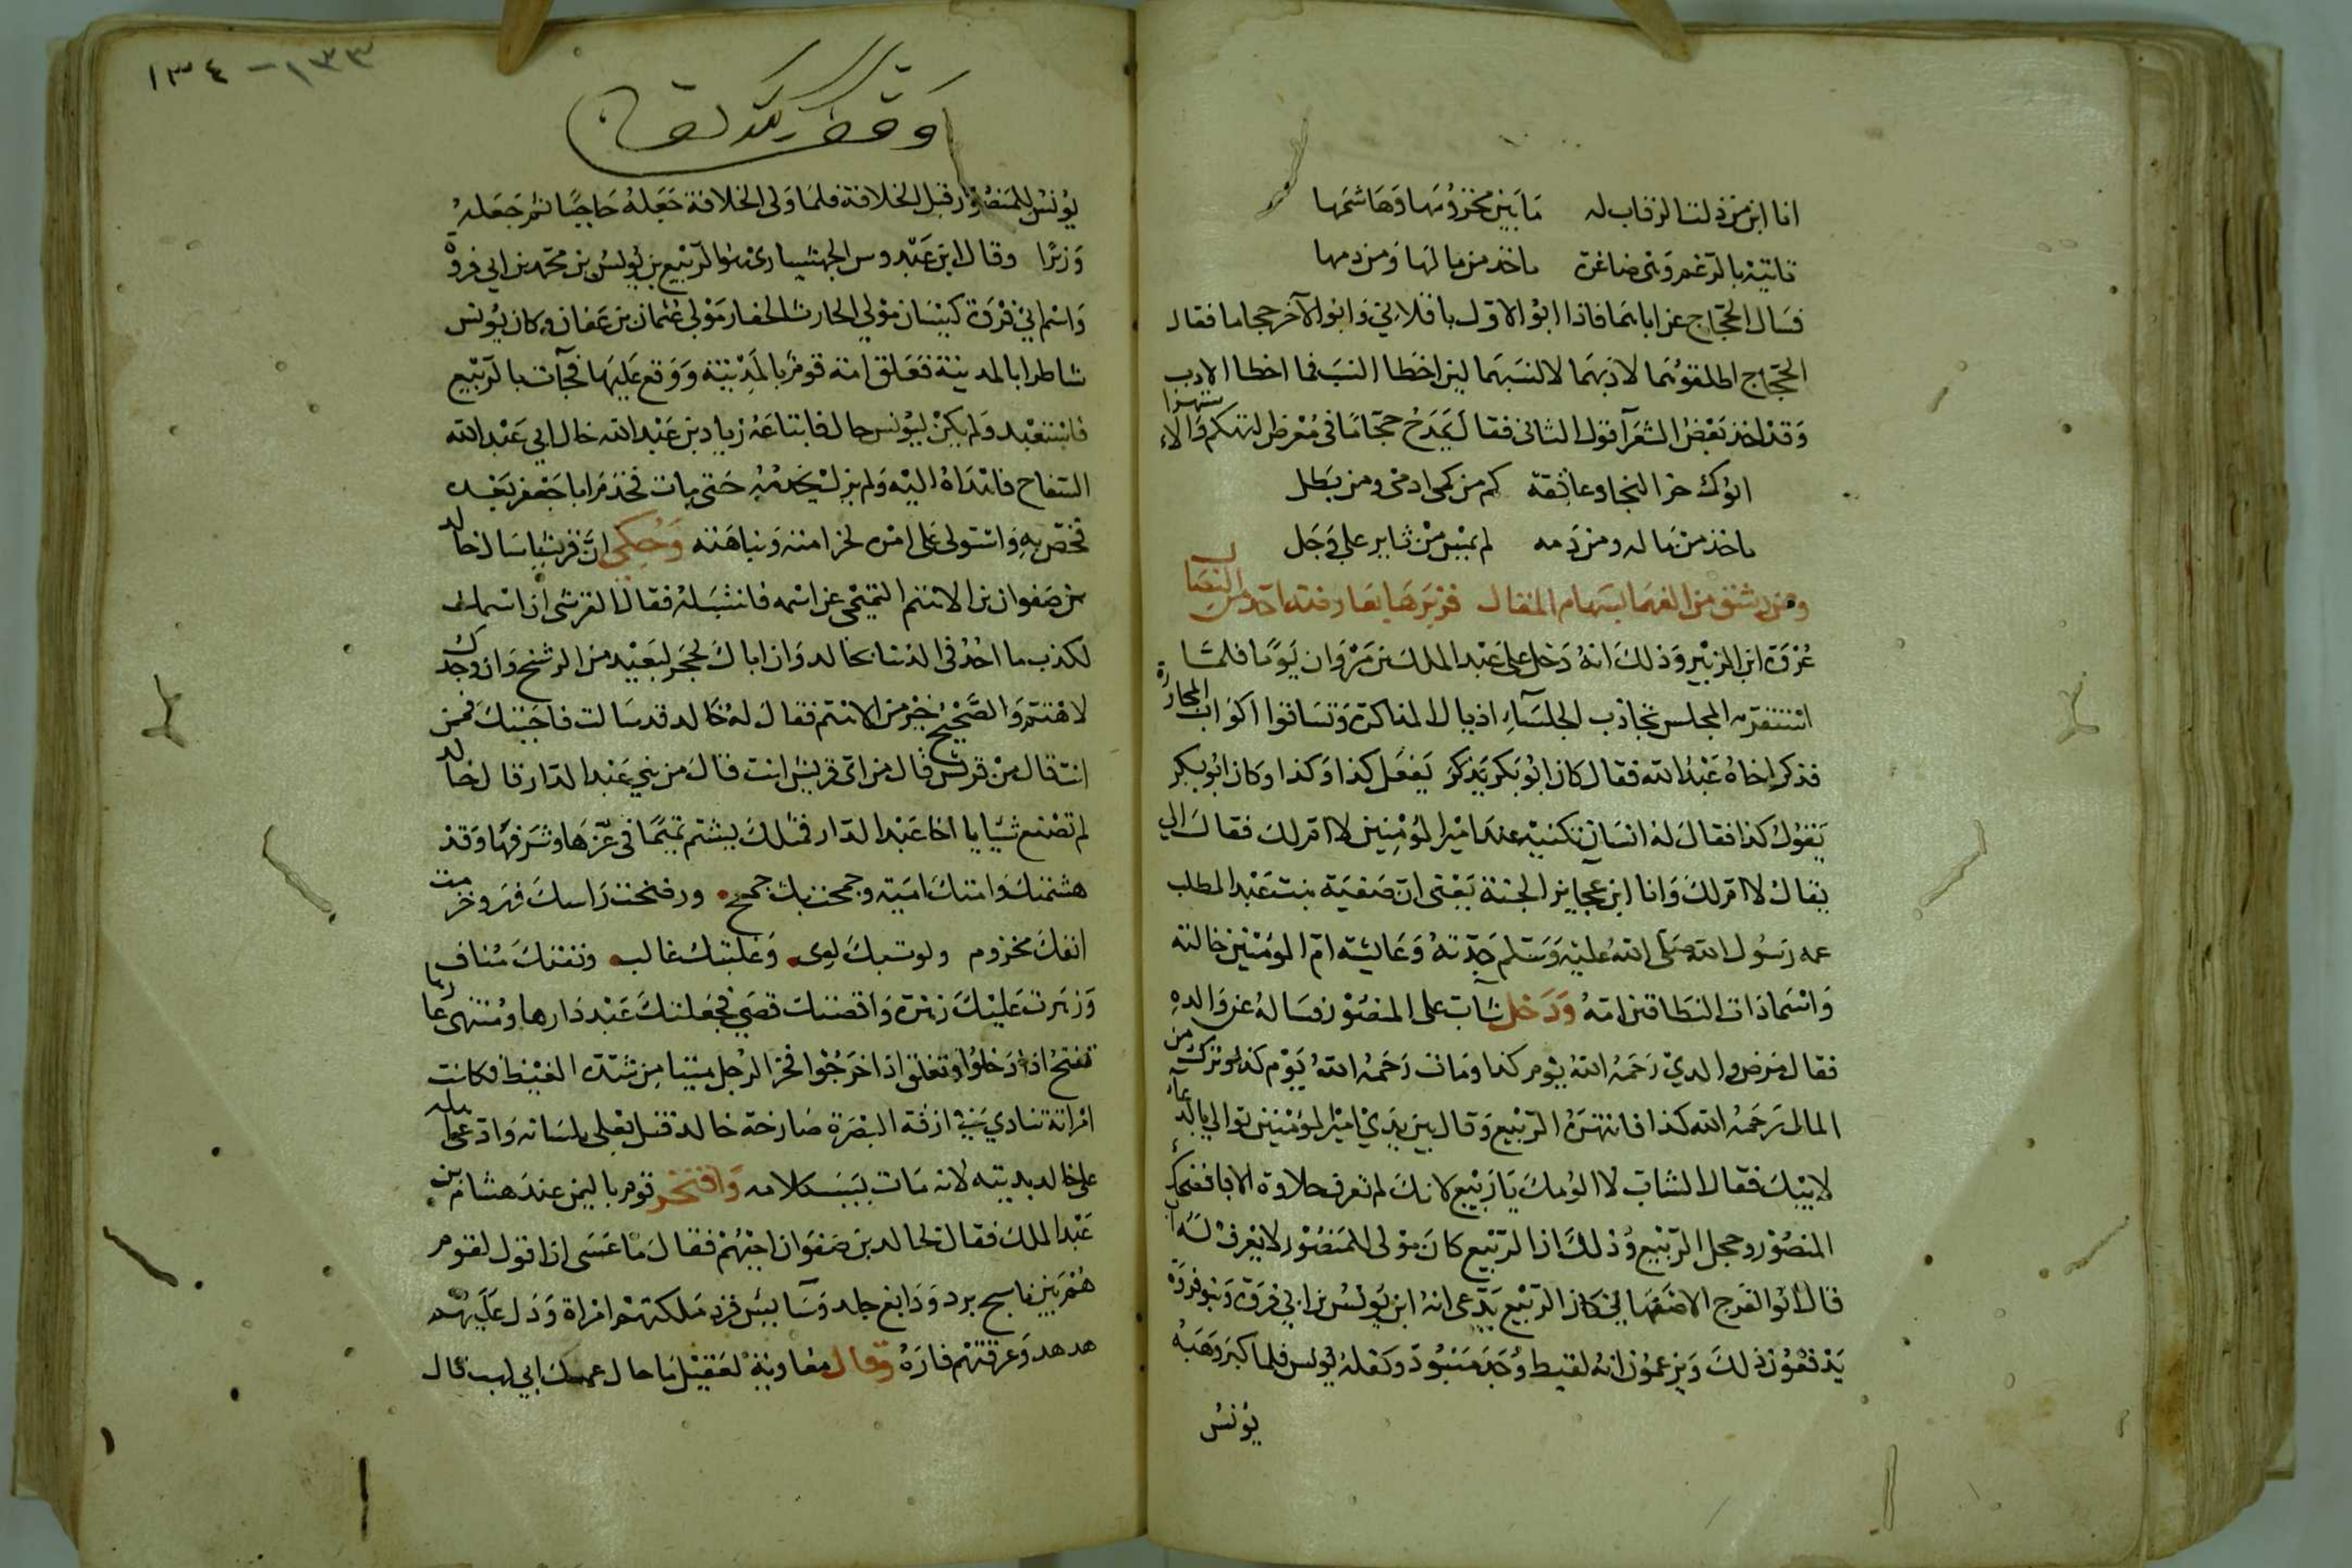 انا ابن من ذلت الرقاب له ما بين مخزومها وهاشمها
تاتيه بالرغم وهي صاغرة ياخذ من مالها ومن دمها
فسال الحجاج عن ابايهما فاذا ابو الاول باقلاني وابو الآخر حجاما فقال
الحجاج اطلقوهما لادبهما لا لنسبهما لين اخطا النسب فما اخطا الادب
وقد اخذ بعض الشعرآ قول الثاني فقال يمدح حجاما في معرض التهكم والاستهزا
ابوك حز النجاد عاتقه كم من كمي ادمى ومن بطل
ياخذ من ماله ومن دمه لم يمس من ثاير على وجل
ومن رشق من الفهما بسهام المقال
عروة ابن الزبير وذلك انه دخل على عبد الملك بن مروان يوما فلما
استقر به المجلس تجاذب الجلسآء اذيال المذاكرة وتساقوا اكواب المحاورة
فذكر اخاه عبد الله فقال كان ابو بكر يذكر يفعل كذا وكذا وكان ابو بكر
يقول كذا فقال له انسان تكنيه عند امير المؤمنين لا ام لك فقال الي
يقال لا ام لك وانا ابن عجايز الجنة يعني ان صفية بنت عبد المطلب
عمه رسول الله صلى الله عليه وسلم جدته وعايشة ام المؤمنين خالته
واسما ذات النطاقين امه ودخل شاب على المنصور فساله عن والده
فقال مرض والدي رحمه الله يوم كذا ومات رحمه الله يوم كذا وترك من
المال رحمه الله كذا فانتهره الربيع وقال بين يدي امير المؤمنين توالي بالدعاء
لابيك فقال الشاب لا الومك يا ربيع لانك لم تعرف حلاوة الابا فضحك
المنصور وخجل الربيع وذلك ان الربيع كان مولى للمنصور لا يعرف له اب
قال ابو الفرج الاصفهاني كان الربيع يدعى انه ابن يونس بن ابي فروة وبنو فروة
يدفعون ذلك ويزعمون انه لقيط وجد منبوذ وكفله يونس فلما كبر وهبه
يونس
١٣٣ - ١٣٤
يونس للمنصور قبل الخلافة فلما ولى الخلافة جعله حاجبا ثم جعله
وزيرا وقال ابن عبدوس الجهشيارى هو الربيع بن يونس بن محمد بن ابي فروة
واسم ابي فروة كيسان مولي الحارث الحفار مولى عثمان بن عفان وكان يونس
شاطرا بالمدينة فعلق امة قوم بالمدينة ووقع عليها فجآت بالربيع
فاستعبد ولم يكن ليونس مال فابتاعه زياد بن عبد الله خال ابي عبد الله
السفاح فاهداه اليه ولم يزل يخدمه حتى مات فخدم ابا جعفر بعده
فخص به واستولى على امره لحزامته ونباهته وحكي ان قرشيا سال خالد
بن صفوان بن الاهتم التميمي عن اسمه فانتسب له فقال القرشي ان اسمك
لكذب ما احد في الدنيا بخالد وان اباك لحجر لبعيد من الرشح وان جدك
لاهتم والصحيح خير من الاهتم فقال له خالد قد سالت فاجبتك فممن
انت قال من قريش قال من اى قريش انت قال من بني عبد الدار قال خالد
لم تصنع شيا يا اخا عبد الدار فمثلك يشتم تميما في عزها وشرفها وقد
هشمتك وامتك اميه وجمحت بك جمح ورضخت راسك فهر وخزمت
انفك مخزوم ولوت بك لوى وغلبتك غالب ونفتك مناف
وزهرت عليك زهرة واقصتك قصي فجعلتك عبد دارها ومنتهى عارها
تفتح اذا دخلوا وتغلق اذا خرجوا فخر الرجل ميتا من شدة الغيظ فكانت
امراته تنادي في ازقة البصرة صارخة خالد قتل بعلي بلسانه وادعى اهله
على خالد بديته لانه مات بسبب كلامه وافتخر قوم باليمن عند هشام بن
عبد الملك فقال لخالد بن صفوان اجبهم فقال ما عسى ان اقول لقوم
هم بين ناسج برد ودابغ جلد وسآيس قرد ملكتهم امراة ودل عليهم
هدهد وغرقتهم فاره وقال معاوية لعقيل ما حال عمك ابي لهب قال